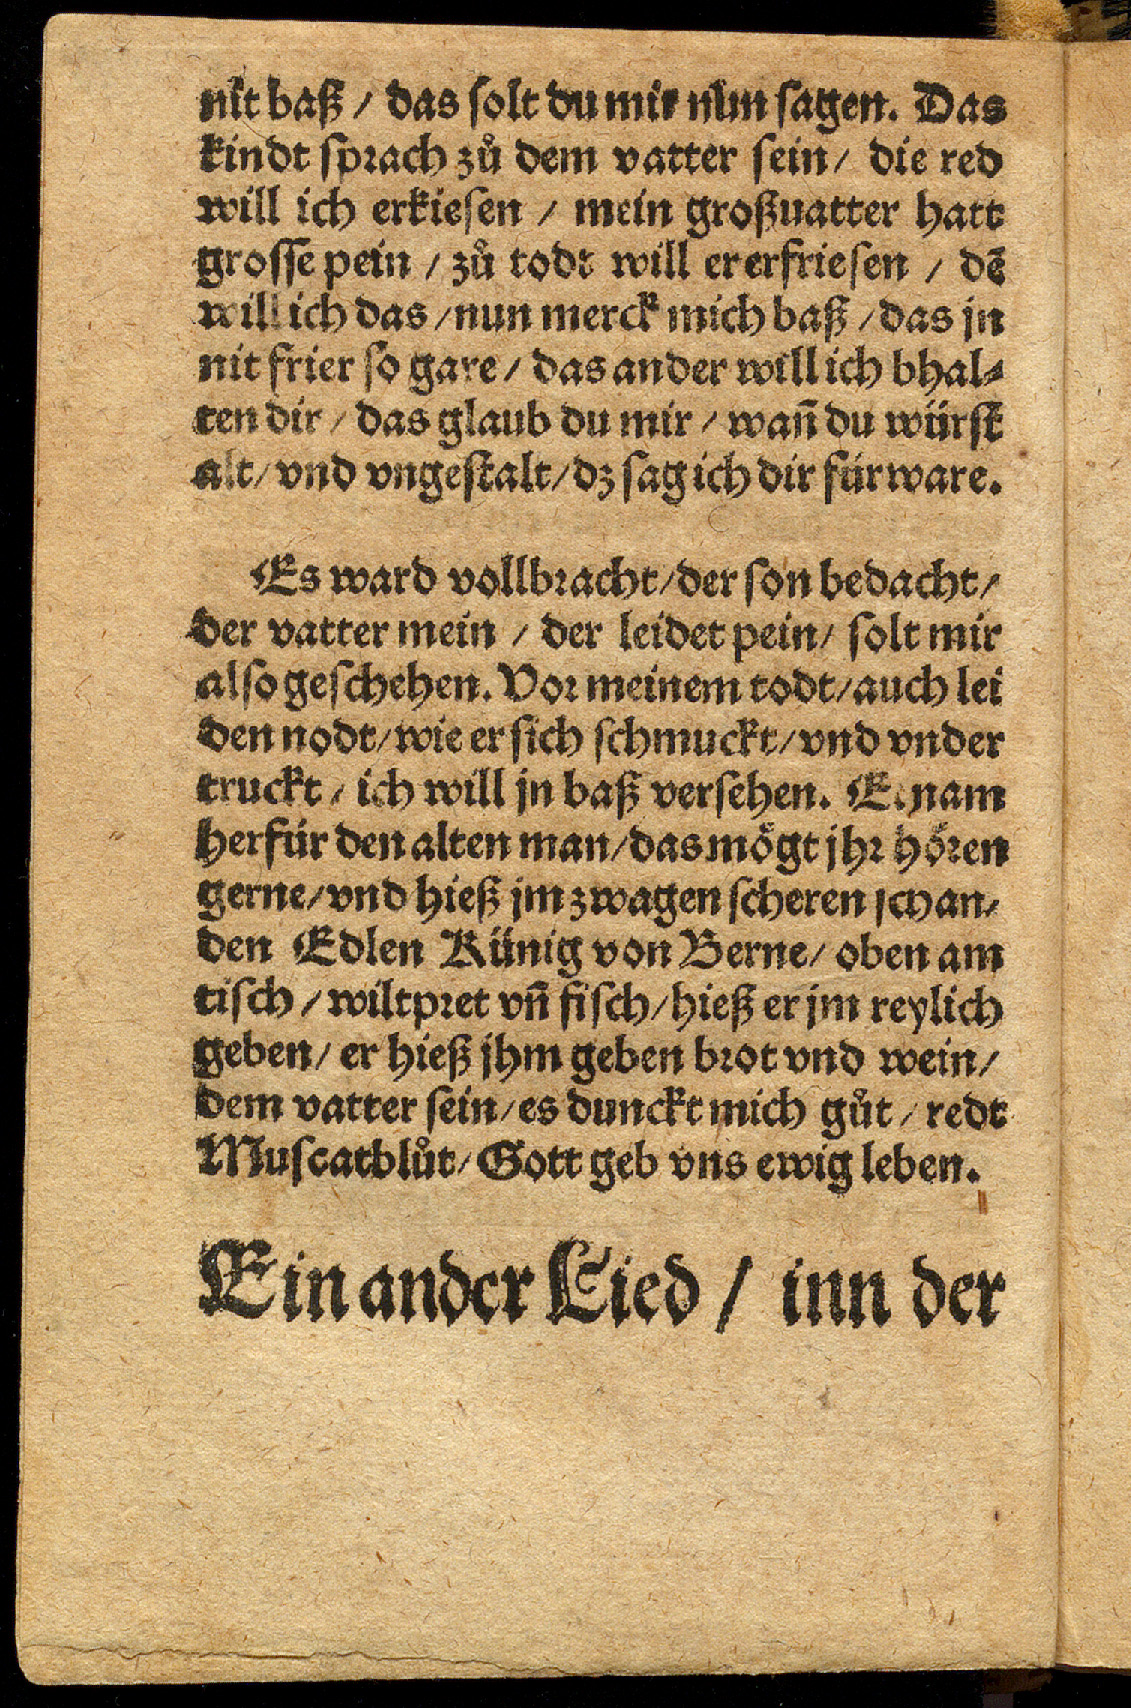 nit baß / das solt du mir nun sagen. Das
kindt sprach zů dem vatter sein / die red
will ich erkiesen / mein großuatter hatt
grosse pein / zů todt will er erfriesen / dē
will ich das / nun merck mich baß / das jn
nit frier so gare / das ander will ich bhal⸗
ten dir / das glaub du mir / wañ du würst
alt / vnd vngestalt / dz sag ich dir fürware.
Es ward vollbracht / der son bedacht /
der vatter mein / der leidet pein / solt mir
also geschehen. Vor meinem todt / auch lei
den nodt / wie er sich schmuckt / vnd vnder
truckt / ich will jn baß versehen. Er nam
herfür den alten man / das mögt jhr hören
gerne / vnd hieß jm zwagen scheren schan /
den Edlen Künig von Berne / oben am
tisch / wiltpret vñ fisch / hieß er jm reylich
geben / er hieß jhm geben brot vnd wein /
dem vatter sein / es dunckt mich gůt / redt
Muscatblůt / Gott geb vns ewig leben.
Ein ander Lied / inn der